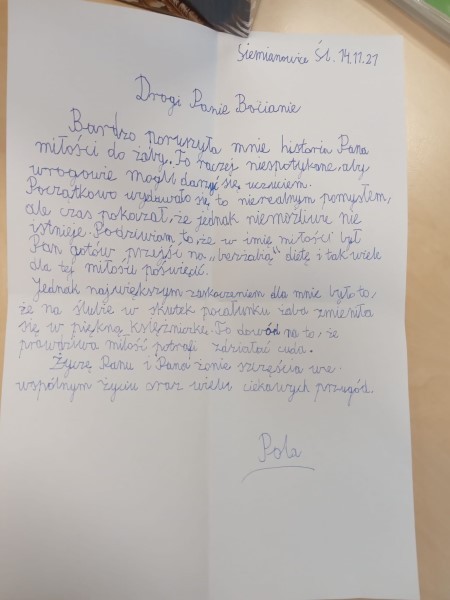 Siemianowice Śl. 14.11.21
Drogi Panie Bocianie
Bardzo poruszyła mnie historia Pana
miłości do żaby. To raczej niespotykane, aby
wrogowie mogli darzyć się uczuciem.
Początkowo wydawało się to nierealnym pomysłem,
ale czas pokazał, że jednak niemożliwe nie
istnieje. Podziwiam to, że w imię miłości był
Pan gotów przejść na „bezżabią" dietę i tak wiele
dla tej miłości poświęcić.
Jednak największym zaskoczeniem dla mnie było to,
że na ślubie w skutek pocałunku żaba zmieniła
się w piękną księżniczkę. To dowód na to, że
prawdziwa miłość potrafi zdziałać cuda.
Życzę Panu i Pana żonie szczęścia we
wspólnym życiu oraz wielu ciekawych przygód.
Pola